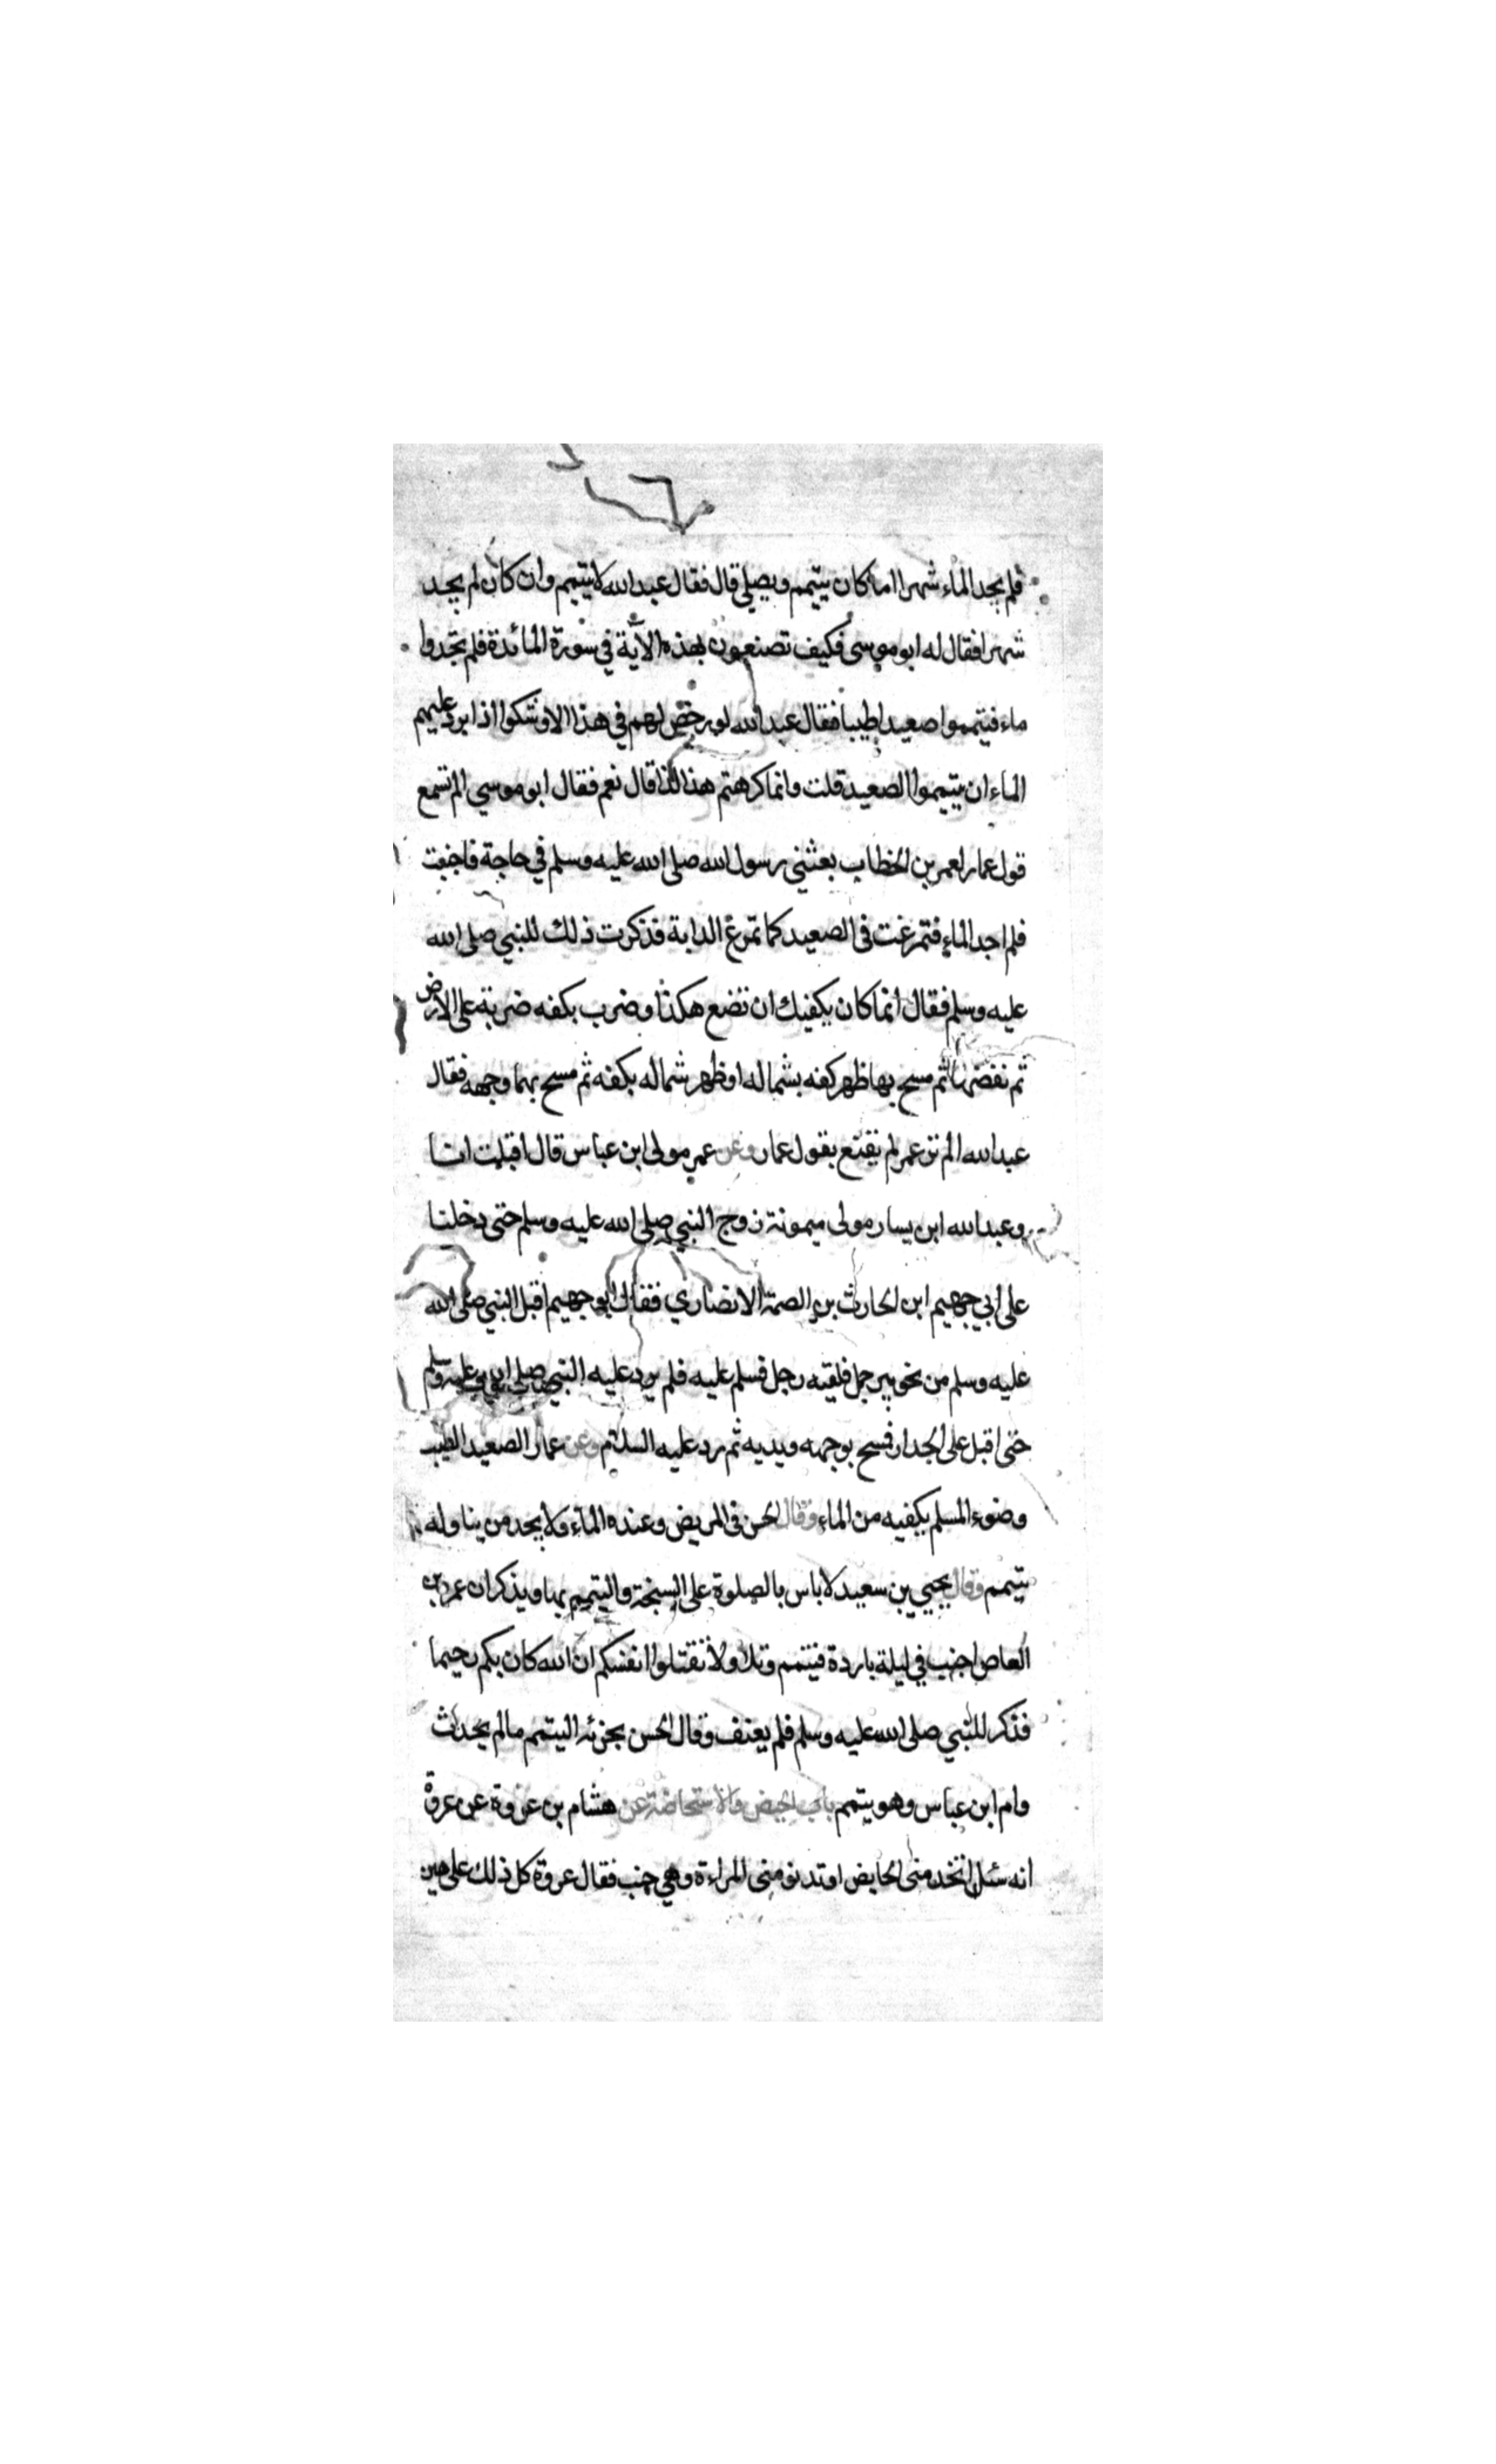 فلم يجد الماء شهرا اما كان يتيمم ويصلي قال فقال عبد الله لا يتيمم وان كان لم يجد
شهرا فقال له ابو موسى فكيف تصنعون بهذه الآية في سورة المائدة فلم تجدوا
ماء فتيمموا صعيدا طيبا فقال عبد الله لو رخص لهم في هذا لاوشكوا اذا برد عليهم
الماء ان يتيمموا الصعيد قلت وانما كرهتم هذا لذا قال نعم فقال ابو موسي الم تسمع
قول عمار لعمر بن الخطاب بعثني رسول الله صلى الله عليه وسلم في حاجة فاجنبت
فلم اجد الماء فتمرغت في الصعيد كما تمرغ الدابة فذكرت ذلك للنبي صلى الله
عليه وسلم فقال انما كان يكفيك ان تضع هكذا وضرب بكفه ضربة على الارض
ثم نفضها ثم مسح بها ظهر كفه بشماله او ظهر شماله بكفه ثم مسح بهما وجهه فقال
عبد الله الم تر عمر لم يقنع بقول عمار وعن عمير مولى ابن عباس قال اقبلت انا
وعبد الله ابن يسار مولى ميمونة زوج النبي صلى الله عليه وسلم حتى دخلنا
على ابي جهيم ابن الحارث بن الصمة الانصاري فقال ابو جهيم اقبل النبي صلى الله
عليه وسلم من نحو بير جمل فلقيه رجل فسلم عليه فلم يرد عليه النبي صلى الله عليه وسلم
حتى اقبل على الجدار فمسح بوجهه ويديه ثم رد عليه السلام وعن عمار الصعيد الطيب
وضوء المسلم يكفيه من الماء وقال الحسن في المريض وعنده الماء ولا يجد من يناوله
يتيمم وقال يحيي بن سعيد لا باس بالصلوة على السبخة والتيمم بها ويذكر ان عمرو بن
العاص اجنب في ليلة باردة فتيمم وتلا ولا تقتلوا انفسكم ان الله كان بكم رحيما
فذكر للنبي صلى الله عليه وسلم فلم يعنف وقال الحسن يجزئه التيمم ما لم يحدث
وام ابن عباس وهو يتيمم باب الحيض والاستحاضة عن هشام بن عروة عن عروة
انه سئل اتخدمني الحايض او تدنو مني المراءة وهي جنب فقال عروة كل ذلك على هين